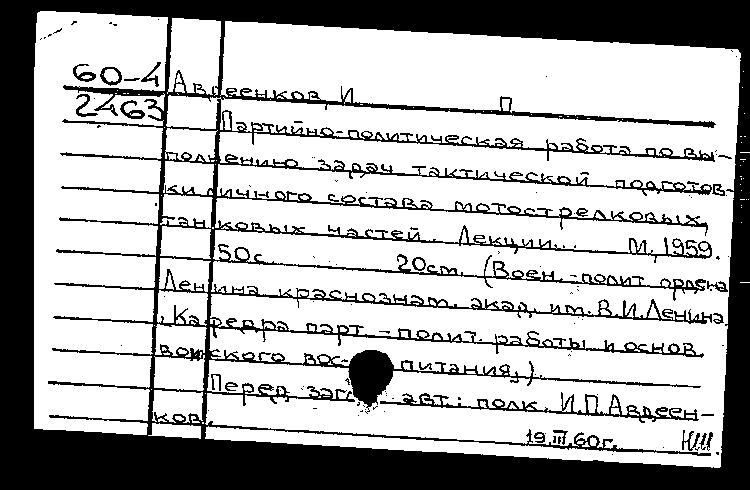 60-4 Авдеенков, И. П
2463
Партийно-политическая работа по вы-
полнению задач тактической подготов-
ки личного состава мотострелковых,
танковых частей. Лекции... М., 1959.
50с. 20см. (Воен.-полит ордена
Ленина краснознам. акад. им. В.И.Ленина
. Кафедра парт.-полит. работы и основ.
воинского вос- питания,).
Перед авт.: полк. И.П.Авдеен-
ков.
19.III.60г. НШ